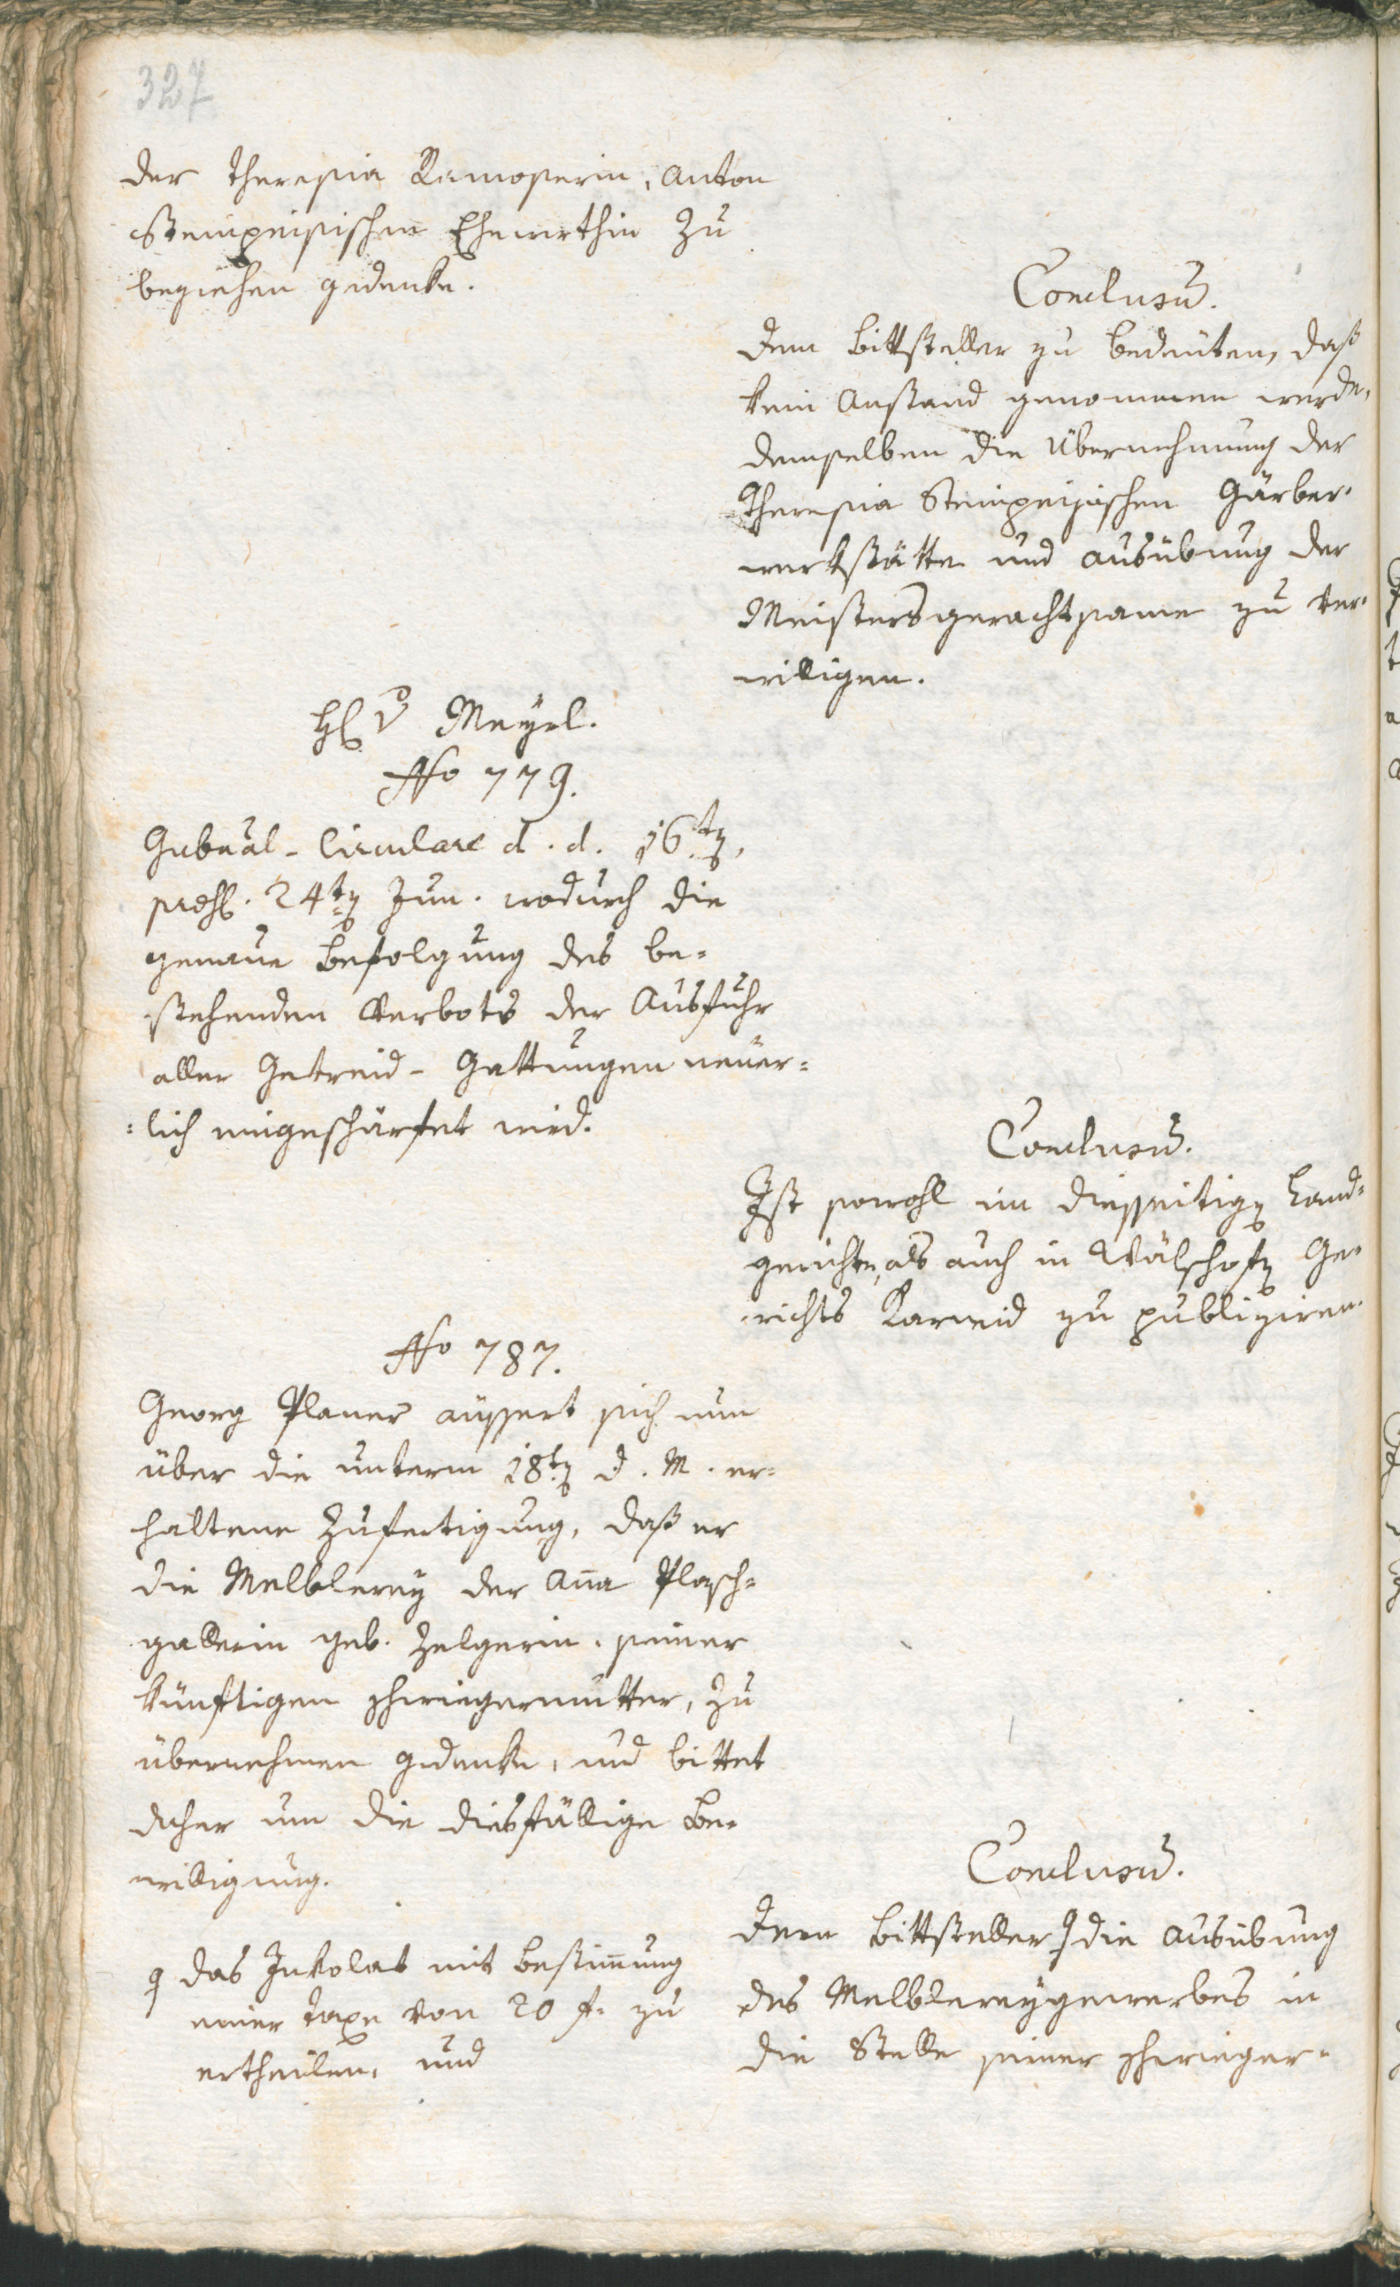 327
der Theresia Ramoserin, Anton
Steinpeisischen Ehewirthin zu
beziehen gedenke.
Conclusum.
Dem Bittsteller zu bedeuten, daß
kein Anstand genommen werde,
demselben die Übernehmung der
Theresia Steinpeisischen Gärber-
werkstätte und Ausübung der
Meistersgerechtsame zu ver-
willigen.
H v Meyrl.
No 779.
Gubnal-Circulare d. d. 16ten,
praes. 24ten Jun. wodurch die
genaue Befolgung des be-
stehenden Verbots der Ausfuhr
aller Getreid-Gattungen neuer=
=lich eingeschärfet wird.
Conclusum.
Ist sowohl im diesseitigen Land=
gerichte, als auch in Wälschofen Ge-
richts Karneid zu publiziren.
No 787.
Georg Planer äussert sich nun
über die unterm 18ten d. M. er=
haltene Zufertigung, daß er
die Melblerey der Anna Plasch=
gallerin geb. Zelgerin, seiner
künftigen Schwiegermutter, zu
übernehmen gedenke, und bittet
daher um die diesfällige Be-
willigung.
Conclusum.
Dem Bittsteller die Ausübung
des Melblereygewerbes in
die Stelle seiner Schwieger-
das Inkolat mit Bestimmung
einer Taxe von 20 f. zu
ertheilen, und